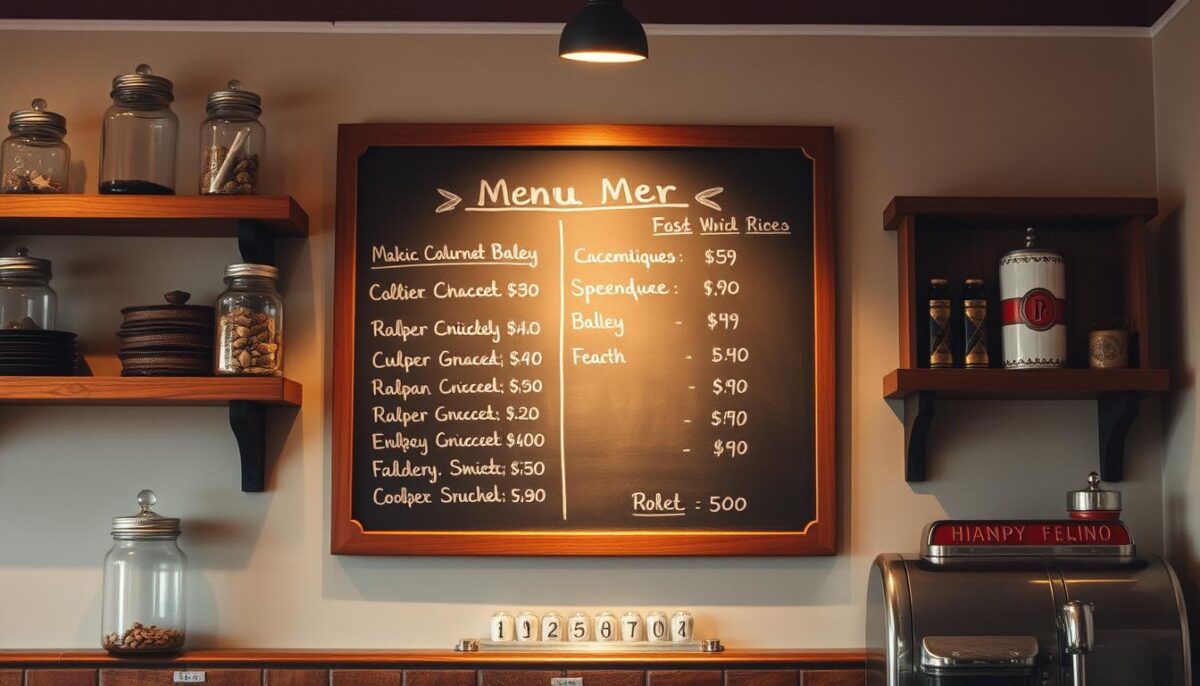 Menu Mer
Fost Wnid Rices
Makic Calumet Baley
Coltier Chacet $30
Ralper Cniickely $4.0
Culper Gnaced; $.40
Ralpan Cricceel: $.50
Ralper Gnccet: $.20
Enlpey Gniccet $400
Faldery. Smictc; $:50
Coolpex Sruchel: 5.90
Cacemliques: $59
Speendµxe: $.90
Balley - $49
Fearth - 5.40
- $.90
- $:90
- $90
Roket : 500
HIANPY FELINO